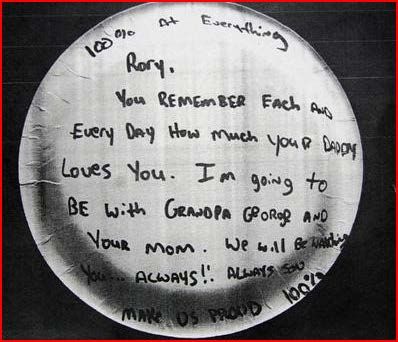 100% At Everything
Rory,
You REMEMBER Each AND
Every Day How much your DADDY
Loves You. I'm going to
BE With GRANDPA GEORGE AND
Your Mom. We will BE watching
You... ALWAYS!! ALWAYS
MAKE US PROUD 100%